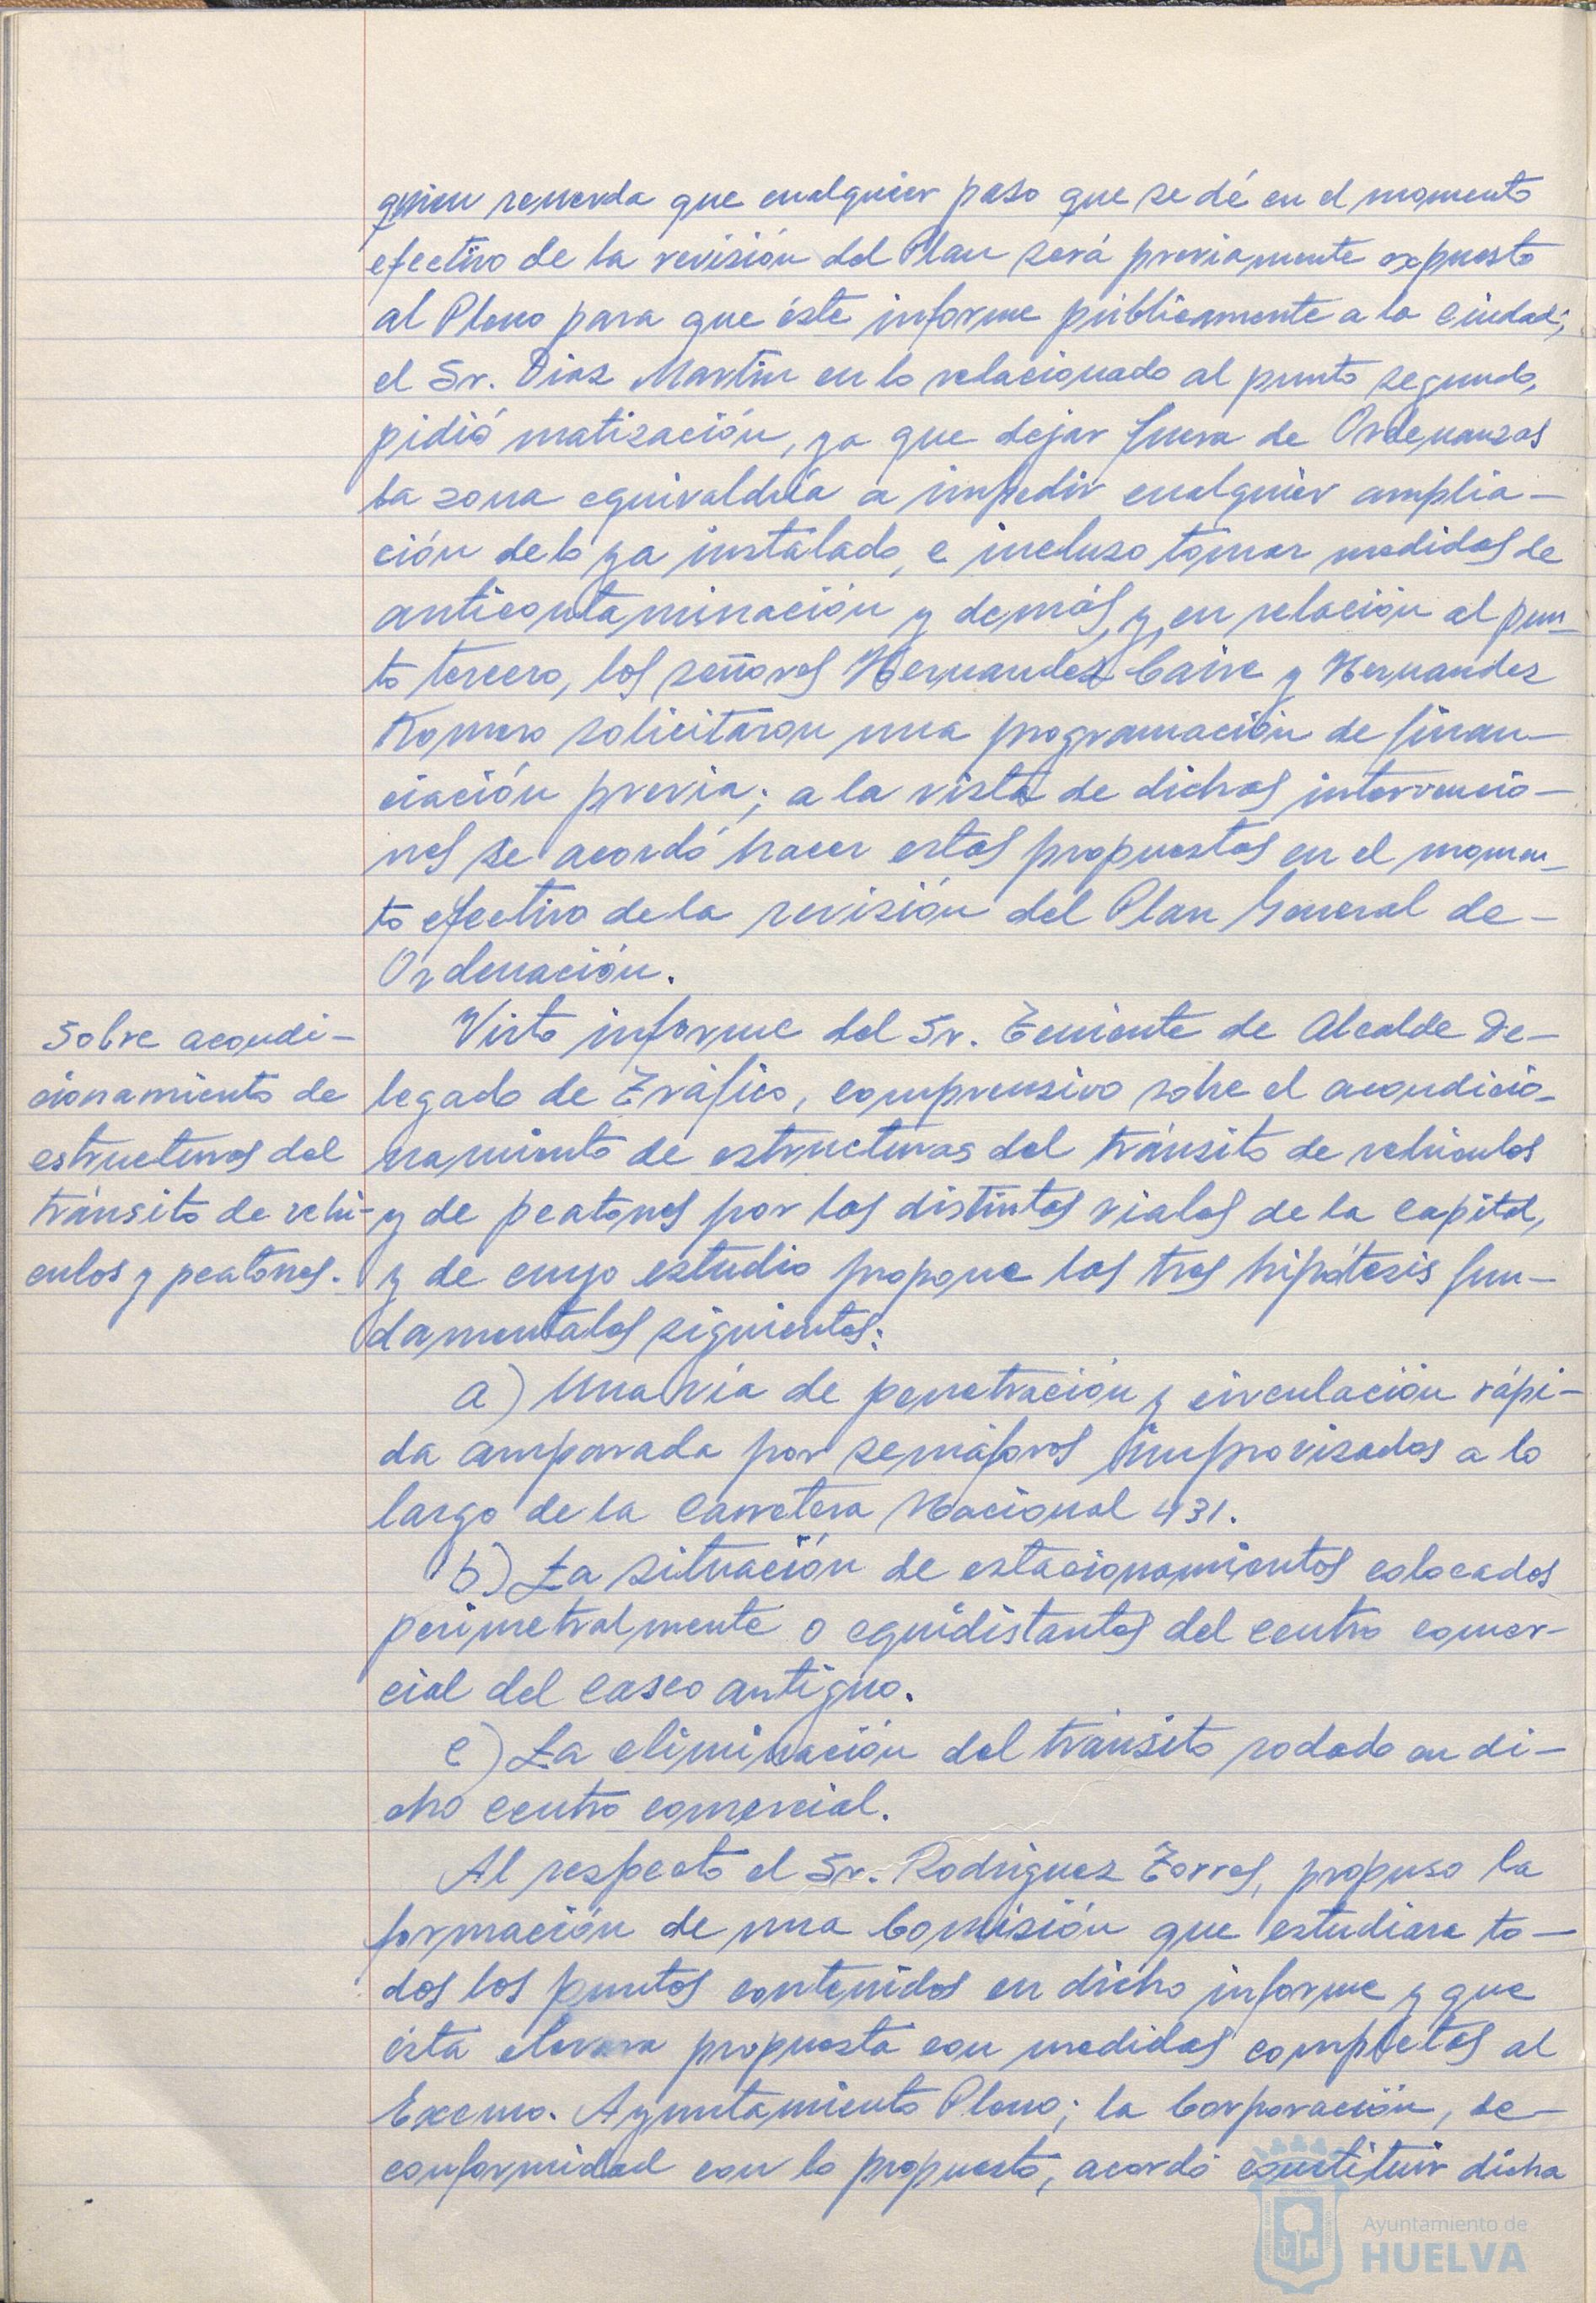 quien recuerda que cualquier paso que se dé en el momento
efectivo de la revisión del Plan será previamente expuesto
al Pleno para que éste informe públicamente a la Ciudad;
el Sr. Diaz Martin en lo relacionado al punto segundo,
pidió matización, ya que dejar fuera de Ordenanzas
la zona equivaldría a impedir cualquier amplia-
ción de lo ya instalado, e incluso tomar medidas de
anticontaminación y demás, y, en relación al pun-
to tercero, los señores Hernandez Caire y Hernandez
Romero solicitaron una programación de finan-
ciación previa; a la vista de dichas intervencio-
nes se acordó hacer estas propuestas en el momen-
to efectivo de la revisión del Plan General de-
Ordenación.
Sobre acondi-
cionamiento de
estructuras del
tránsito de vehi-
culos y peatones.
Visto informe del Sr. Teniente de Alcalde De-
legado de Tráfico, comprensivo sobre el acondicio-
namiento de estructuras del tránsito de vehiculos
y de peatones por los distintos viales de la Capital,
y de cuyo estudio propone las tres hipótesis fun-
damentales siguientes:
a) Una vía de penetración y circulación rápi-
da amparada por semáforos improvisados a lo
largo de la Carretera Nacional 431.
b) La situación de estacionamientos colocados
perimetralmente o equidistantes del centro comer-
cial del casco antiguo.
c) La eliminación del tránsito rodado en di-
cho centro comercial.
Al respecto el Sr. Rodriguez Torres, propuso la
formación de una Comisión que estudiara to-
dos los puntos contenidos en dicho informe y que
ésta elevara propuesta con medidas completas al
Excmo. Ayuntamiento Pleno; la Corporación, de-
conformidad con lo propuesto, acordó constituir dicha
Ayuntamiento de
HUELVA